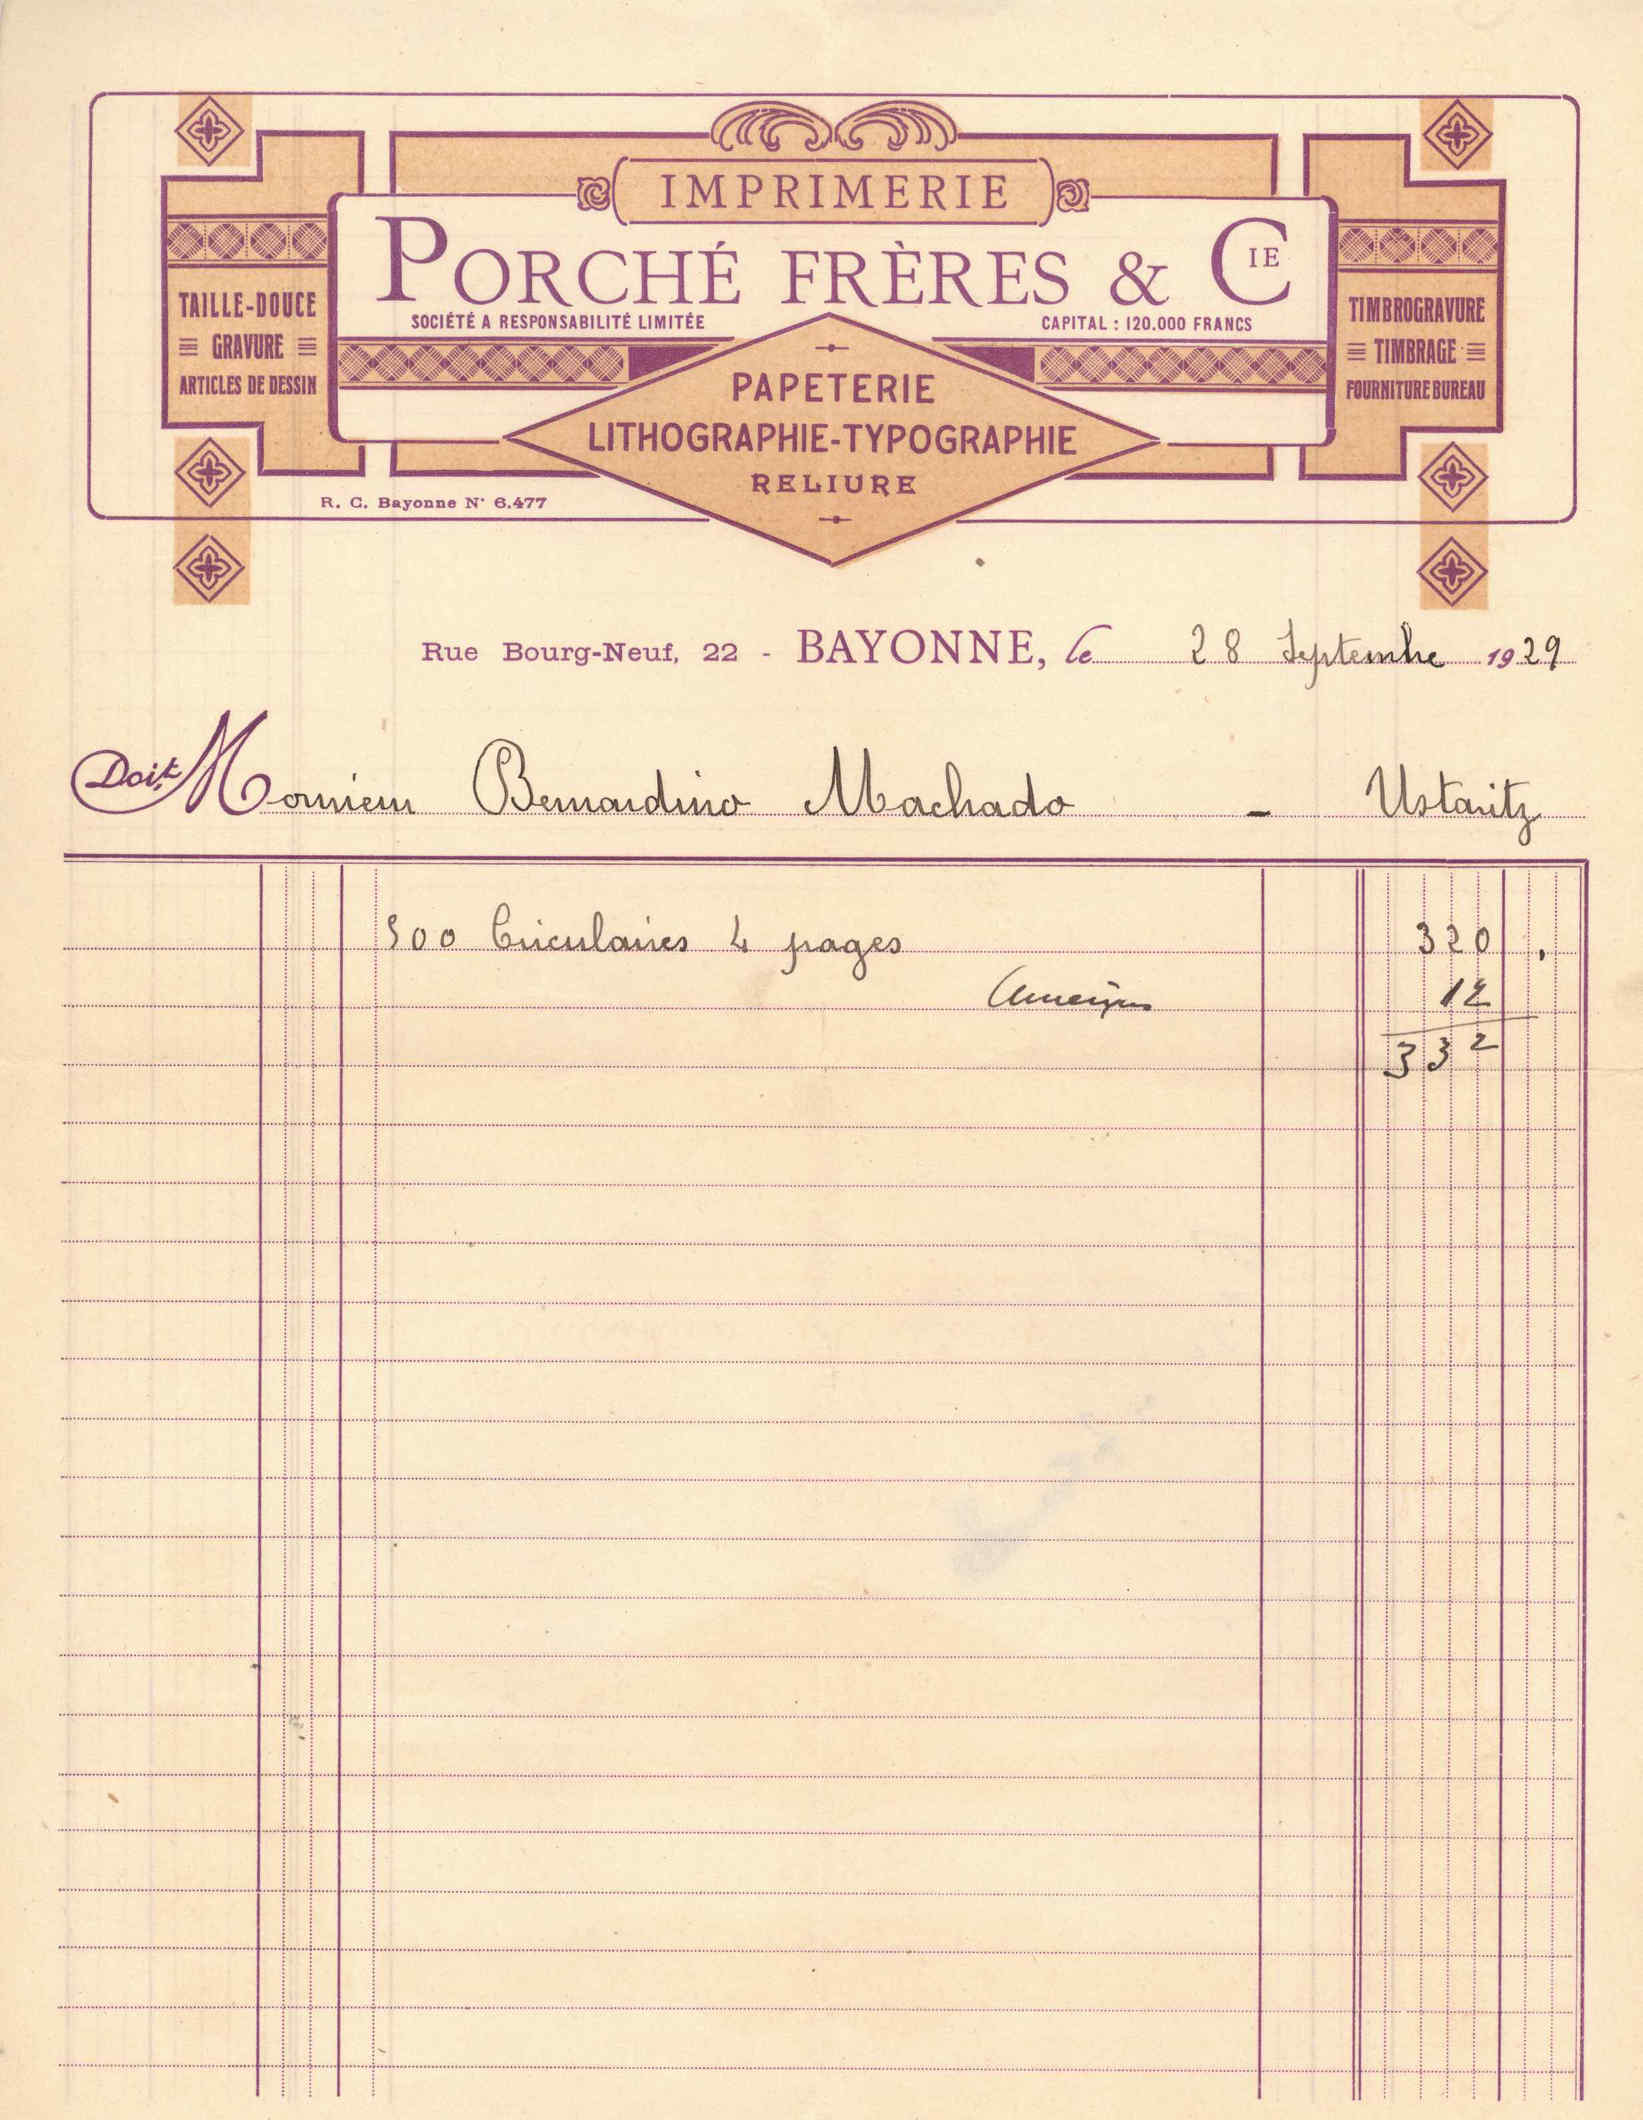 IMPRIMERIE
PORCHÉ FRÈRES & CIE
SOCIÉTÉ A RESPONSABILITÉ LIMITÉE
CAPITAL : 120.000 FRANCS
TAILLE-DOUCE
GRAVURE
ARTICLES DE DESSIN
TIMBROGRAVURE
TIMBRAGE
FOURNITURE BUREAU
PAPETERIE
LITHOGRAPHIE-TYPOGRAPHIE
RELIURE
R. C. Bayonne N° 6.477
Rue Bourg-Neuf, 22 - BAYONNE, le 28 Septembre 1929
Doit Monsieur Bernardino Machado - Ustaritz
500 Circulaires 4 pages 320 ,
12
332